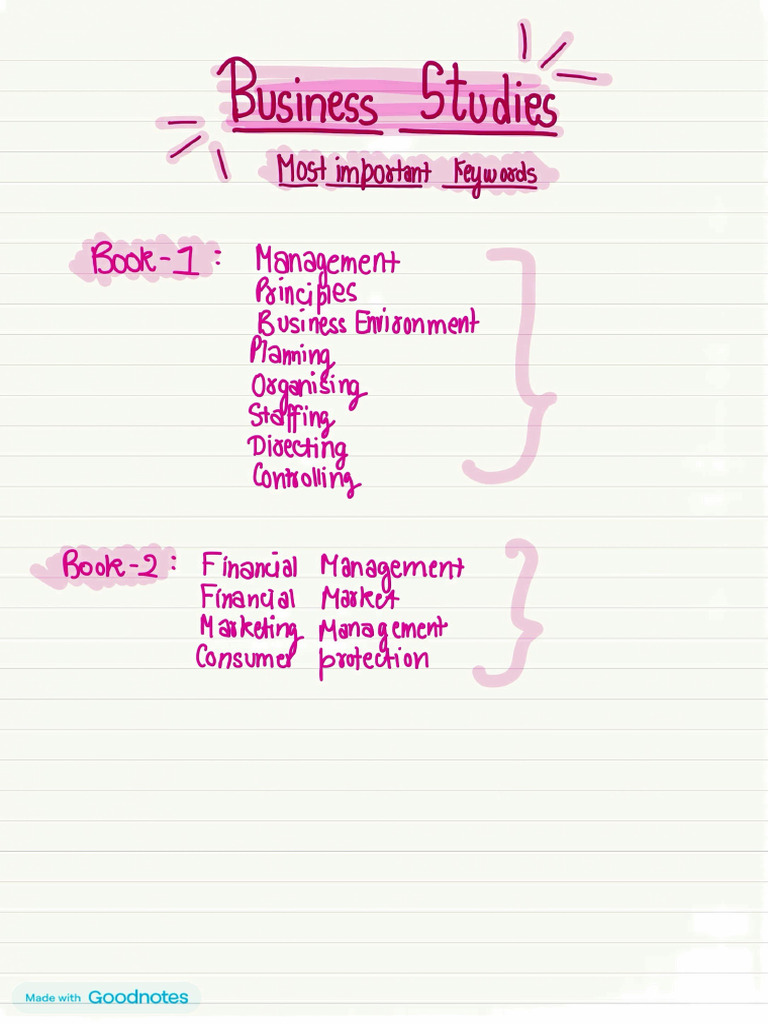 Business Studies
Most important Keywords
Book-1: Management
Principles
Business Environment
Planning
Organising
Staffing
Directing
Controlling
Book-2: Financial Management
Financial Market
Marketing Management
Consumer protection
Made with Goodnotes